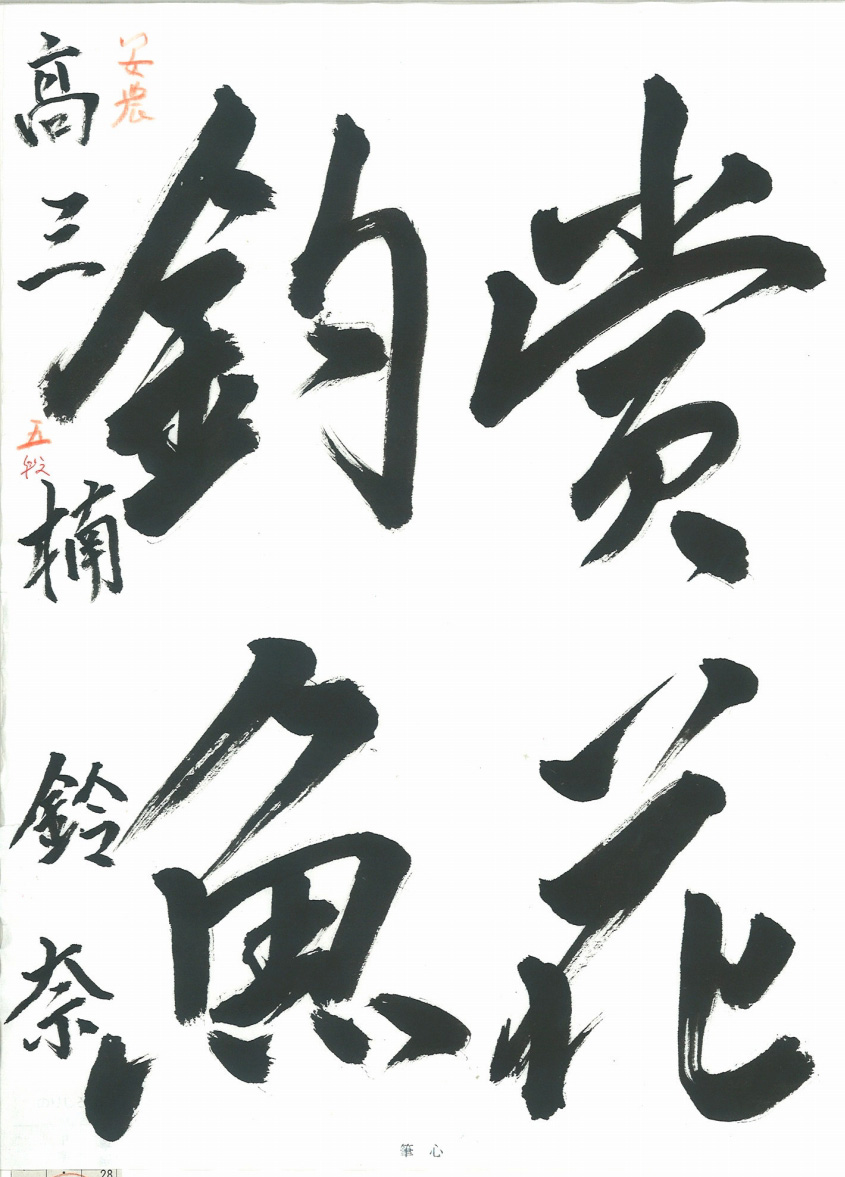 賞花
釣魚
安農
高三 楠 鈴奈
五段
筆心
28